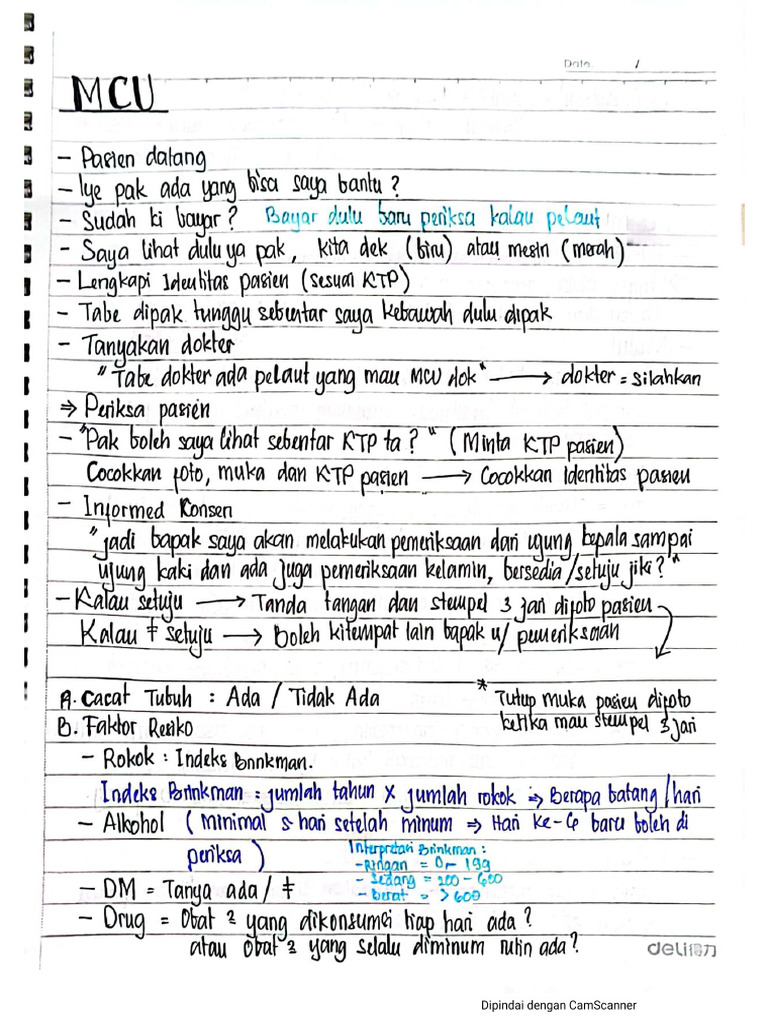 Date /
MCU
- Pasien datang
- Iye pak ada yang bisa saya bantu?
- Sudah ki bayar? Bayar dulu baru periksa kalau pelaut
- Saya lihat dulu ya pak, kita dek (biru) atau mesin (merah)
- Lengkapi Identitas pasien (sesuai KTP)
- Tabe dipak tunggu sebentar saya kebawah dulu dipak
- Tanyakan dokter
"Tabe dokter ada pelaut yang mau MCU dok" → dokter = silahkan
⇒ Periksa pasien
- "Pak boleh saya lihat sebentar KTP ta?" (Minta KTP pasien)
Cocokkan foto, muka dan KTP pasien → Cocokkan Identitas pasien
- Informed Konsen
"jadi bapak saya akan melakukan pemeriksaan dari ujung kepala sampai
ujung kaki dan ada juga pemeriksaan kelamin, bersedia/setuju jiki?"
- Kalau setuju → Tanda tangan dan stempel 3 jari difoto pasien
Kalau ≠ setuju → Boleh kitempat lain bapak u/ pemeriksaan
A. Cacat Tubuh : Ada / Tidak Ada
* Tutup muka pasien difoto
ketika mau stempel 3 jari
B. Faktor Resiko
- Rokok : Indeks Brinkman.
Indeks Brinkman : jumlah tahun x jumlah rokok ⇒ Berapa batang/hari
- Alkohol (minimal 5 hari setelah minum ⇒ Hari ke-6 baru boleh di
periksa)
Interpretasi Brinkman :
- Ringan = 0 - 199
- Sedang = 200 - 600
- berat = > 600
- DM = Tanya ada / ≠
- Drug = Obat 2 yang dikonsumsi tiap hari ada?
atau obat 2 yang selalu diminum rutin ada?
deli得力
Dipindai dengan CamScanner